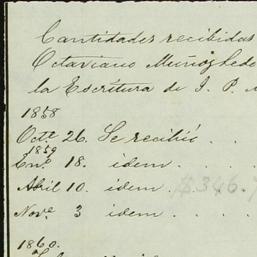 Cantidades recibidas
Octaviano Muñoz Ledo
la Escritura de I. P.
1858
Octe 26. Se recibió . .
1859
Eno 18. idem . . .
Abril 10. idem . $346.
Nove 3 idem . . . .
1860.